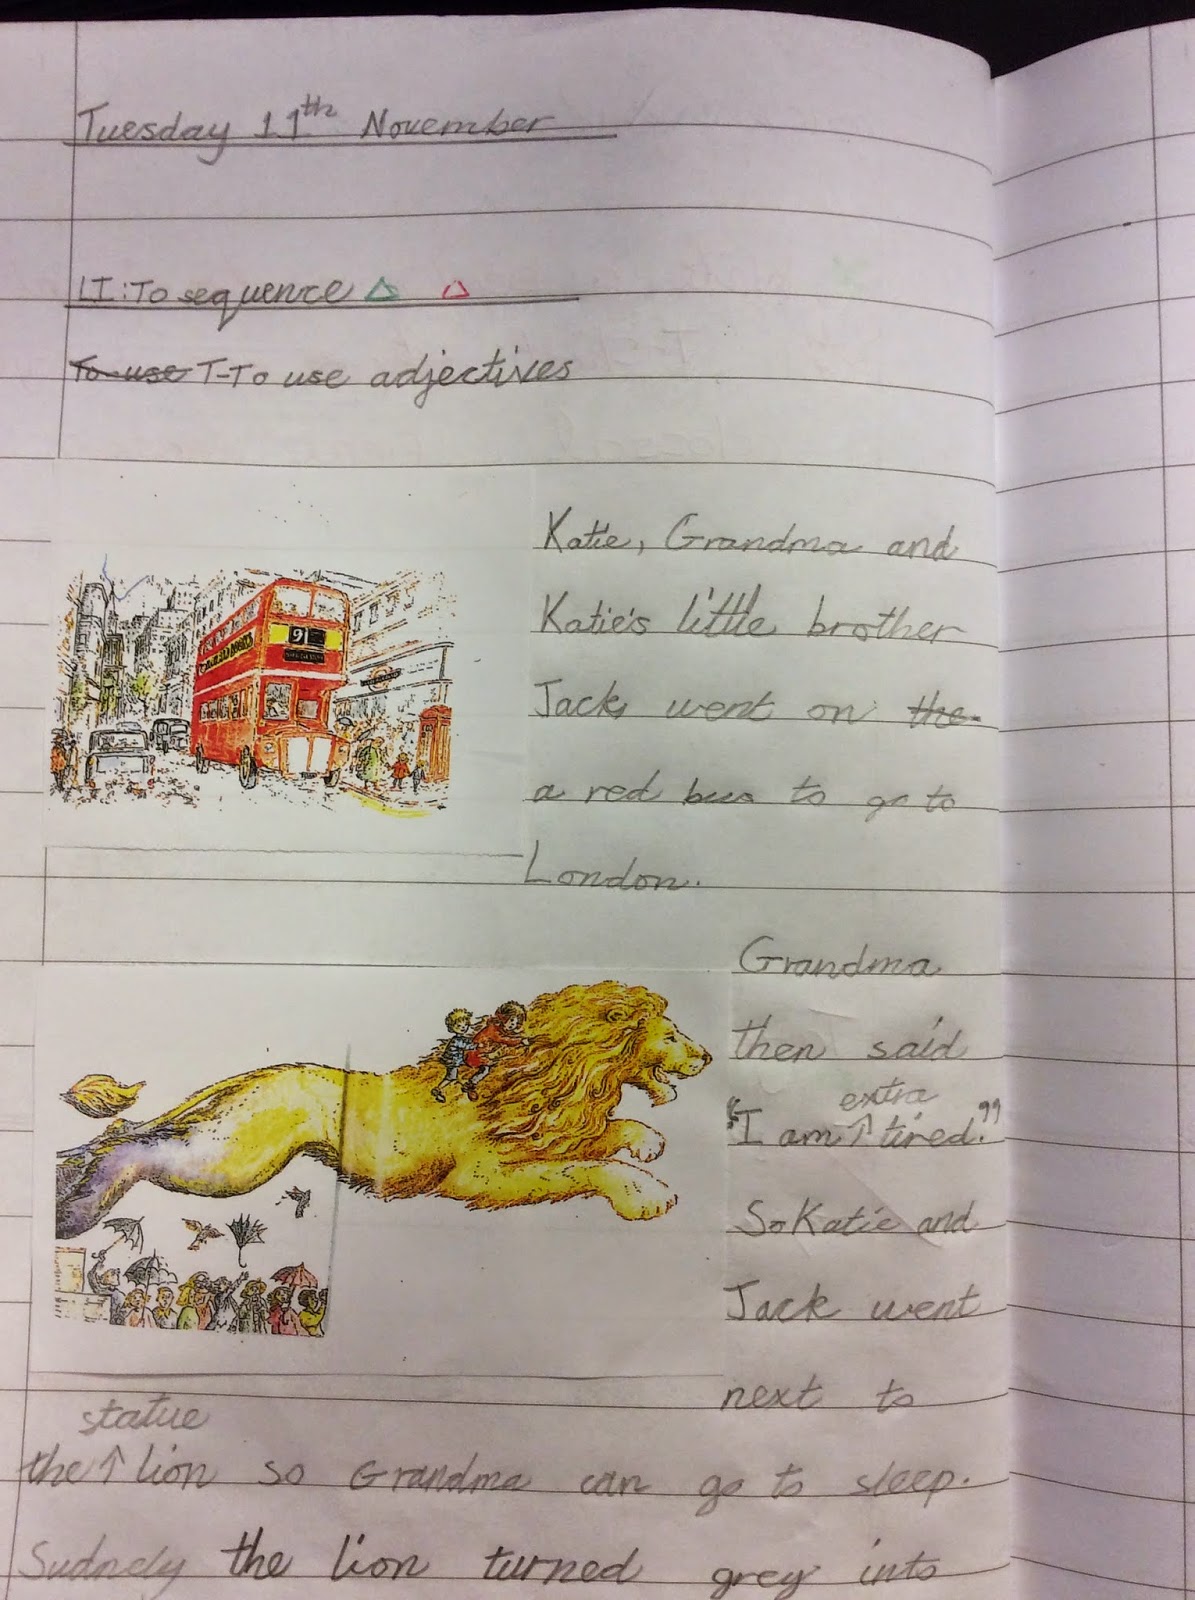 Tuesday 11th November
LI: To sequence
~~To use~~ T-To use adjectives
91
Katie, Grandma and
Katie's little brother
Jack, went on ~~the~~
a red bus to go to
London.
Grandma
then said
extra
"I am ↑ tired."
So Katie and
Jack went
next to
statue
the ↑ lion so Grandma can go to sleep.
Sudnely the lion turned grey into